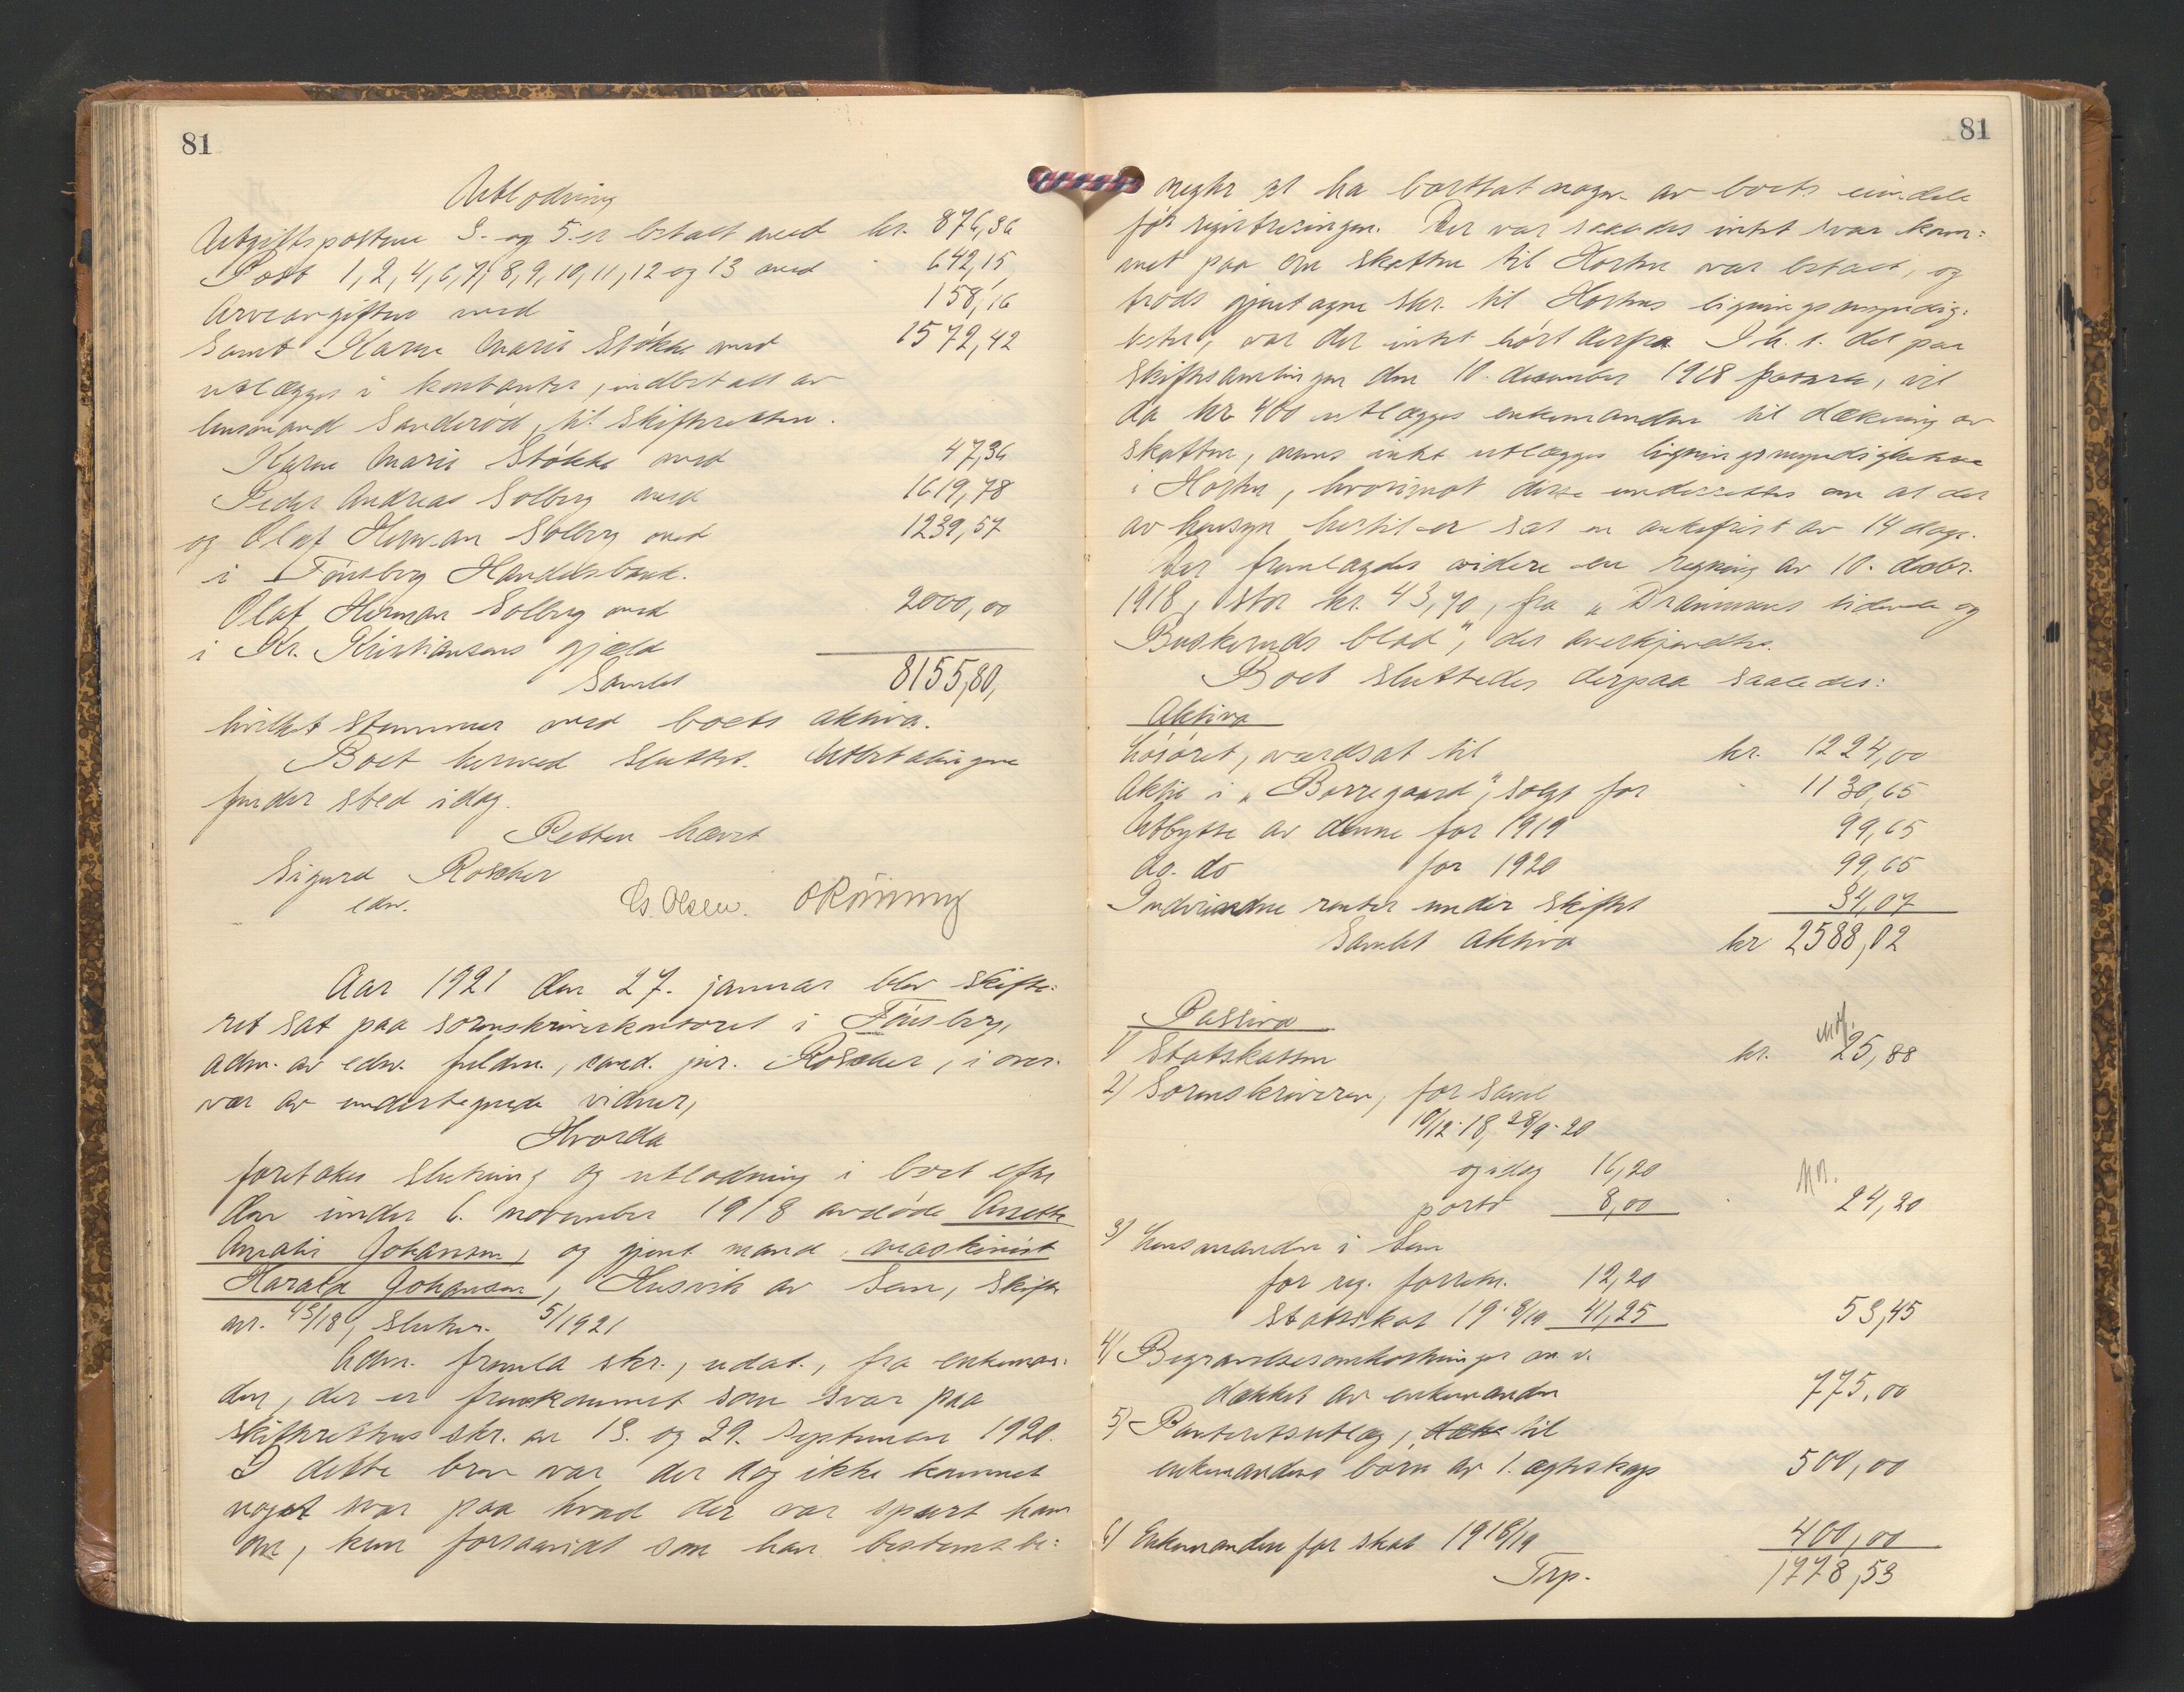 81
Utlodning
Utgiftspostene 3. og 5. er betalt med kr. 876,36
Post 1, 2, 4, 6, 7, 8, 9, 10, 11, 12 og 13 med 642,15
Arveavgiften med 158,16
Samt Karen Marie Stökke med 1572,42
utlægges i kontanter, indbetalt av
lensmand Sanderöd, til skifteretten.
Karen Marie Stökke med 47,36
Peder Andreas Solberg med 1619,78
og Olaf Herman Solberg med 1239,57
i Tönsberg Handelsbank.
Olaf Herman Solberg med 2000,00
i Kr. Kristiansens gjæld
Samlet 8155,80,
hvilket stemmer med boets aktiva.
Boet hermed sluttet. Utbetalingene
finder sted idag.
Retten hævet
Sigurd Roscher
edsv.
Cs. Olsen. O Rönning
Aar 1921 den 27. januar blev skifte-
ret sat paa sorenskriverkontoret i Tönsberg,
adm. av edsv. fuldm., cand. jur. Roscher, i over-
vær av undertegnede vidner,
Hvorda
foretokes slutning og utlodning i boet efter
den under 6. november 1918 avdöde Anette
Amalie Johansen, og gjenl. mand maskinist
Harald Johansen, Husvik av Sem, skifte
nr. 43/18, slutn. 5/1921
Adm. fremla skr., udat., fra enkeman-
den, der er fremkommet som svar paa
skifterettens skr. av 13. og 29. september 1920.
I dette brev var der dog ikke kommet
noget svar paa hvad der var spurt ham
om, kun forsaavidt som han bestemt be-
81
negter at ha borttat nogen av boets eiendele
för registreringen. Der var saaledes intet svar kom-
met paa om skatten til Horten var betalt, og
trods gjentagne skr. til Hortens ligningsmyndig-
heter, var der intet hört derfra. I h. t. det paa
skiftesamlingen den 10. december 1918 passerte, vil
da kr 400 utlægges enkemanden til dækning av
skatten, mens intet utlægges ligningsmyndighetene
i Horten, hvorimot disse underrettes om at der
av hensyn hertil er sat en ankefrist av 14 dage.
Der fremlagdes videre en regning av 10. decbr.
1918, stor kr. 43,90, fra "Drammens tidende og
Buskeruds blad", der anerkjendtes.
Boet sluttedes derpaa saaledes:
Aktiva
Lösöret, værdsat til kr. 1224,00
Aktje i "Borregaard", solgt for 1130,65
Utbytte av denne for 1919 99,65
do. do for 1920 99,65
Indvundne renter under skiftet 34,07
Samlet aktiva kr 2588,02
Passiva
1) Statskassen kr. 25,88
2) Sorenskriveren, for saml
10/12-18, 28/9-20
og idag 16,20
porto 8,00 24,20
3) Lensmanden i Sem
for reg. forretn. 12,20
Statsskat 1918/19 41,25 53,45
4) Begravelsesomkostninger m. v.
dækket av enkemanden 775,00
5) Panteretsutlæg, til
enkemandens barn av 1. egteskap 500,00
6) Enkemanden for skat 1918/19 400,00
Trp. 1778,53